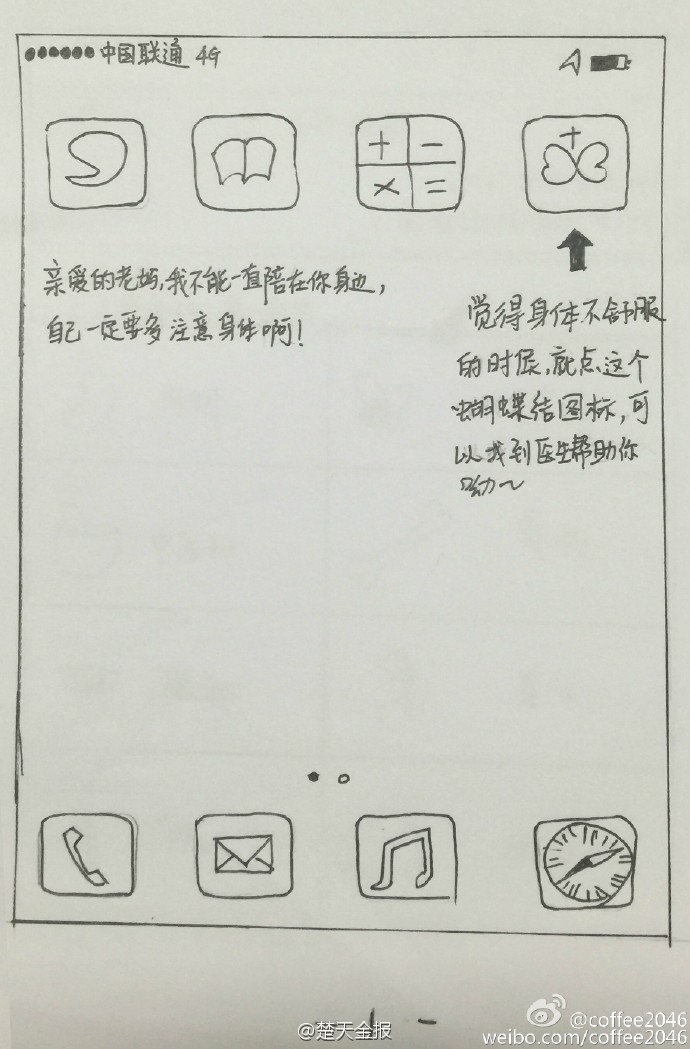 中国联通 4G
亲爱的老妈,我不能一直陪在你身边,
自己一定要多注意身体啊!
觉得身体不舒服
的时候,就点这个
蝴蝶结图标,可
以找到医生帮助你
呦~
@楚天金报
@coffee2046
weibo.com/coffee2046